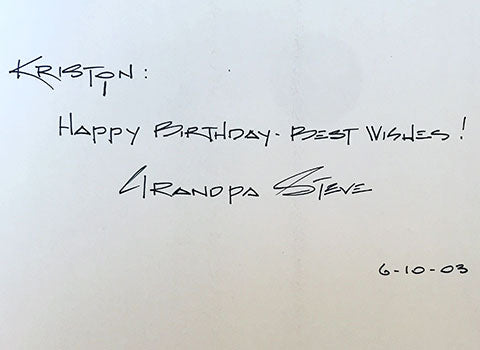 KRISTIN:
HAPPY BIRTHDAY - BEST WISHES!
GRANDPA STEVE
6-10-03